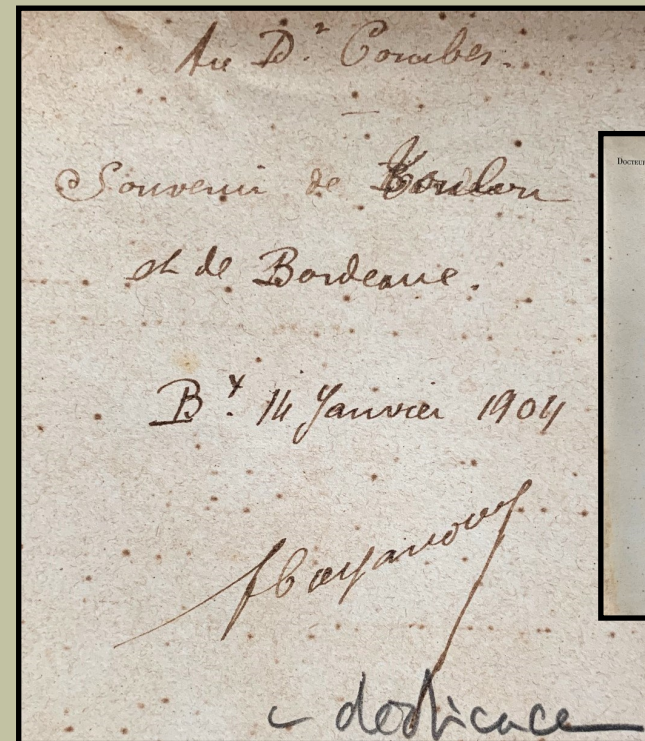 Au D.r Combes.
Souvenir de Toulon
et de Bordeaux.
Bx. 14 Janvier 1904
dedicace
DOCTEUR